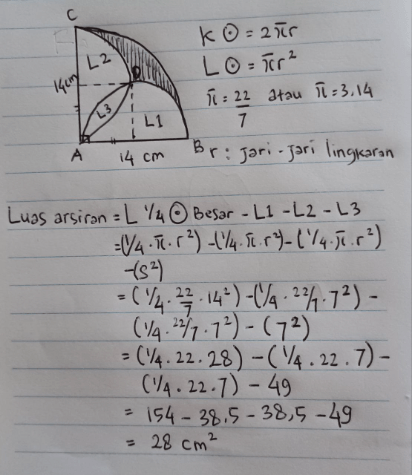 C
L2
14cm
L3
L1
A
14 cm
B
K ⊙ = 2π̄r
L ⊙ = π̄r²
π̄ = 22/7 atau π̄ = 3,14
r : jari-jari lingkaran
Luas arsiran = L 1/4 ⊙ Besar - L1 - L2 - L3
= (1/4 . π̄ . r²) - (1/4 . π̄ . r²) - (1/4 . π̄ . r²)
- (s²)
= (1/4 . 22/7 . 14²) - (1/4 . 22/7 . 7²) -
(1/4 . 22/7 . 7²) - (7²)
= (1/4 . 22 . 28) - (1/4 . 22 . 7) -
(1/4 . 22 . 7) - 49
= 154 - 38,5 - 38,5 - 49
= 28 cm²